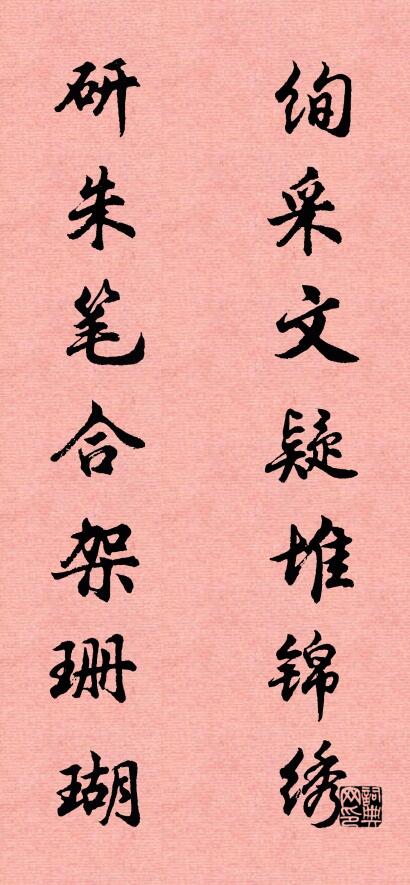 绚采文疑堆锦绣
研朱笔合架珊瑚
词典网印